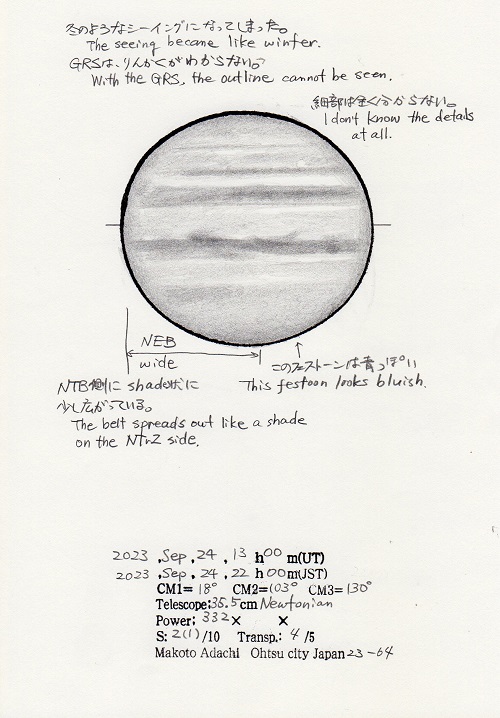 冬のようなシーイングになってしまった。
The seeing became like winter.
GRSは、りんかくがわからない。
With the GRS, the outline cannot be seen.
細部は全く分からない。
I don't know the details
at all.
NEB
wide
このフェストーンは青っぽい
This festoon looks bluish.
NTB側に shade状に
少し広がっている。
The belt spreads out like a shade
on the NTrZ side.
2023 ,Sep, 24, 13 h00 m(UT)
2023 ,Sep, 24, 22 h00m(JST)
CM1= 18° CM2=103° CM3=130°
Telescope;35.5cm Newtonian
Power; 332× ×
S: 2(1)/10 Transp.: 4/5
Makoto Adachi Ohtsu city Japan 23-64